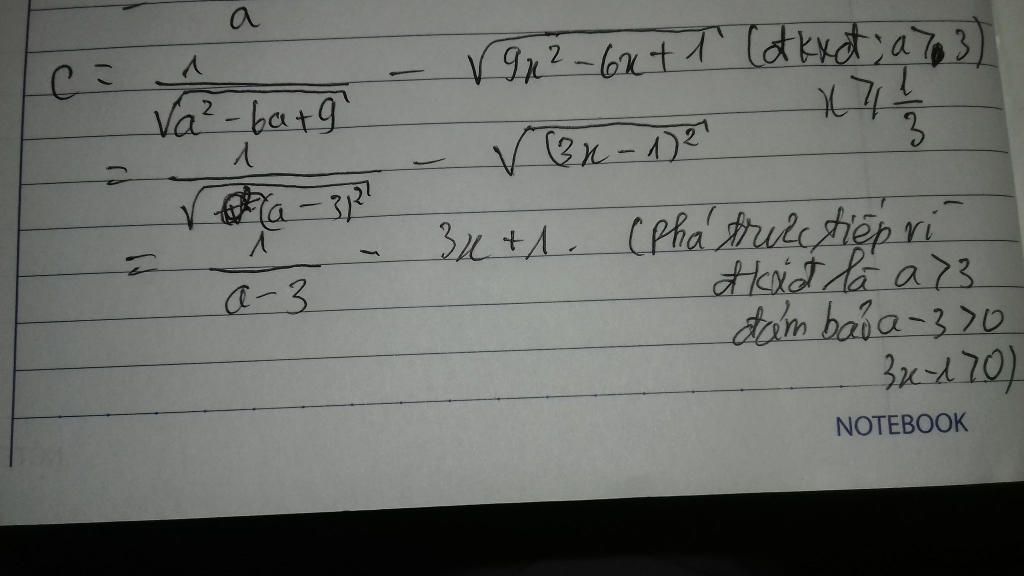 a
C = 1/√(a² - 6a + 9) - √(9x² - 6x + 1) (đkxđ: a > 3)
x ≥ 1/3
= 1/√((a - 3)²) - √((3x - 1)²)
= 1/(a - 3) - 3x + 1. (phá trực tiếp vì
đkxđ là a > 3
đảm bảo a - 3 > 0
3x - 1 > 0)
NOTEBOOK